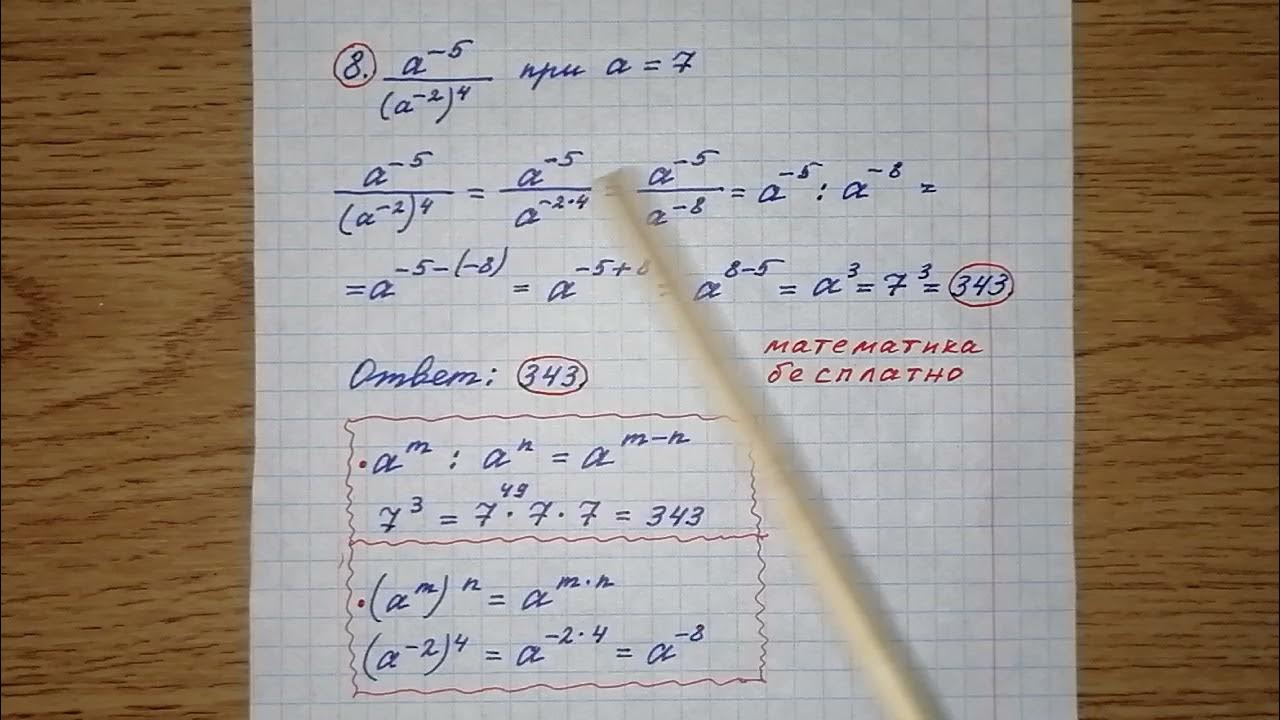 8. a⁻⁵/(a⁻²)⁴ при a = 7
a⁻⁵/(a⁻²)⁴ = a⁻⁵/a⁻²·⁴ = a⁻⁵/a⁻⁸ = a⁻⁵ : a⁻⁸ =
= a⁻⁵⁻⁽⁻⁸⁾ = a⁻⁵⁺⁸ = a⁸⁻⁵ = a³ = 7³ = 343
математика
бесплатно
Ответ: 343
• aᵐ : aⁿ = aᵐ⁻ⁿ
49
7³ = 7 · 7 · 7 = 343
• (aᵐ)ⁿ = aᵐ·ⁿ
(a⁻²)⁴ = a⁻²·⁴ = a⁻⁸